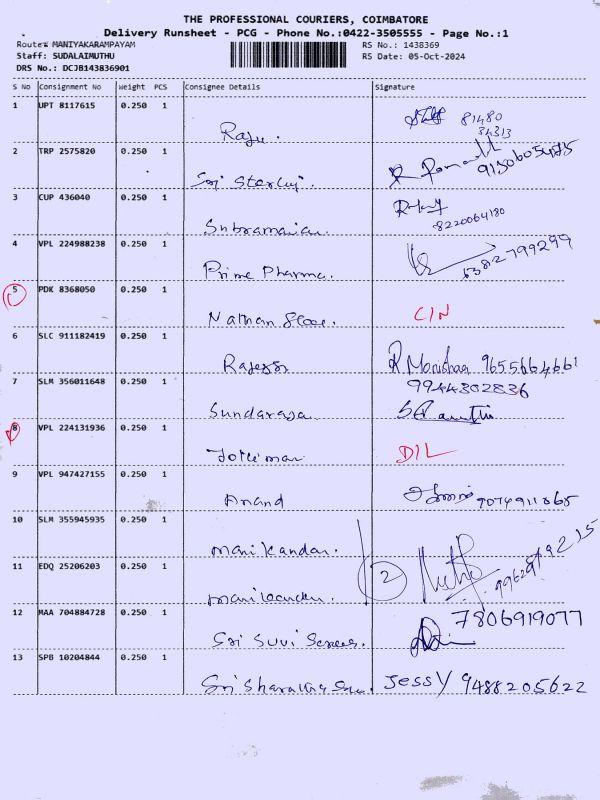 THE PROFESSIONAL COURIERS, COIMBATORE
Delivery Runsheet - PCG - Phone No.:0422-3505555 - Page No.:1
Route: MANIYAKARAMPAYAM RS No.: 1438369
Staff: SUDALAIMUTHU RS Date: 05-Oct-2024
DRS No.: DCJB143836901
S No Consignment No Weight PCS Consignee Details Signature
1 UPT 8117615 0.250 1
81480
34313
Raju.
2 TRP 2575820 0.250 1
Sri
3 CUP 436040 0.250 1
8220064180
4 VPL 224988238 0.250 1
6382799299
Prime Pharma.
5 PDK 8368050 0.250 1
Nathan C/N
6 SLC 911182419 0.250 1
R 9655664661
7 SLM 356011648 0.250 1 9944302836
8 VPL 224131936 0.250 1
D/L
9 VPL 947427155 0.250 1
Anand
10 SLM 355945935 0.250 1
Manikandan.
11 EDQ 25206203 0.250 1
2
12 MAA 704884728 0.250 1 7806919077
Sri
13 SPB 10204844 0.250 1
Sri Jessy 9488205622